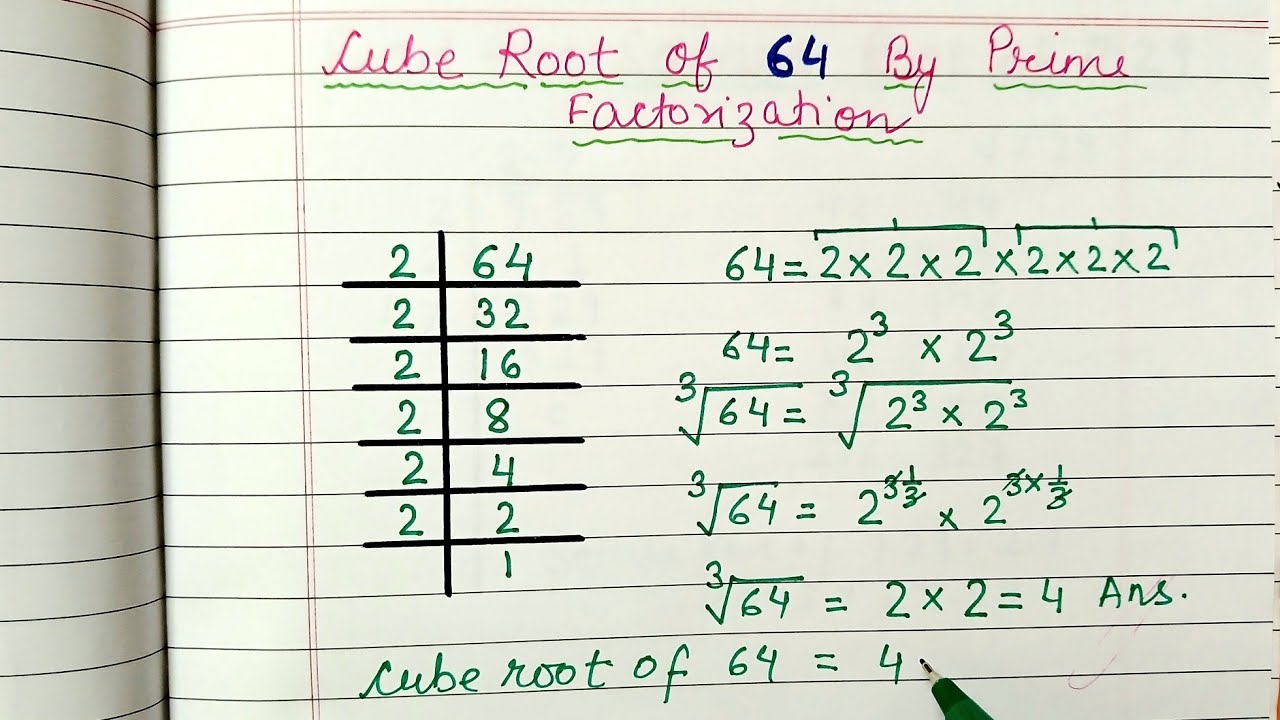 Cube Root of 64 By Prime
Factorization
2 | 64
2 | 32
2 | 16
2 | 8
2 | 4
2 | 2
1
64 = 2 × 2 × 2 × 2 × 2 × 2
64 = 2³ × 2³
∛64 = ∛2³ × 2³
∛64 = 2^3×1/3 × 2^3×1/3
∛64 = 2 × 2 = 4 Ans.
cube root of 64 = 4